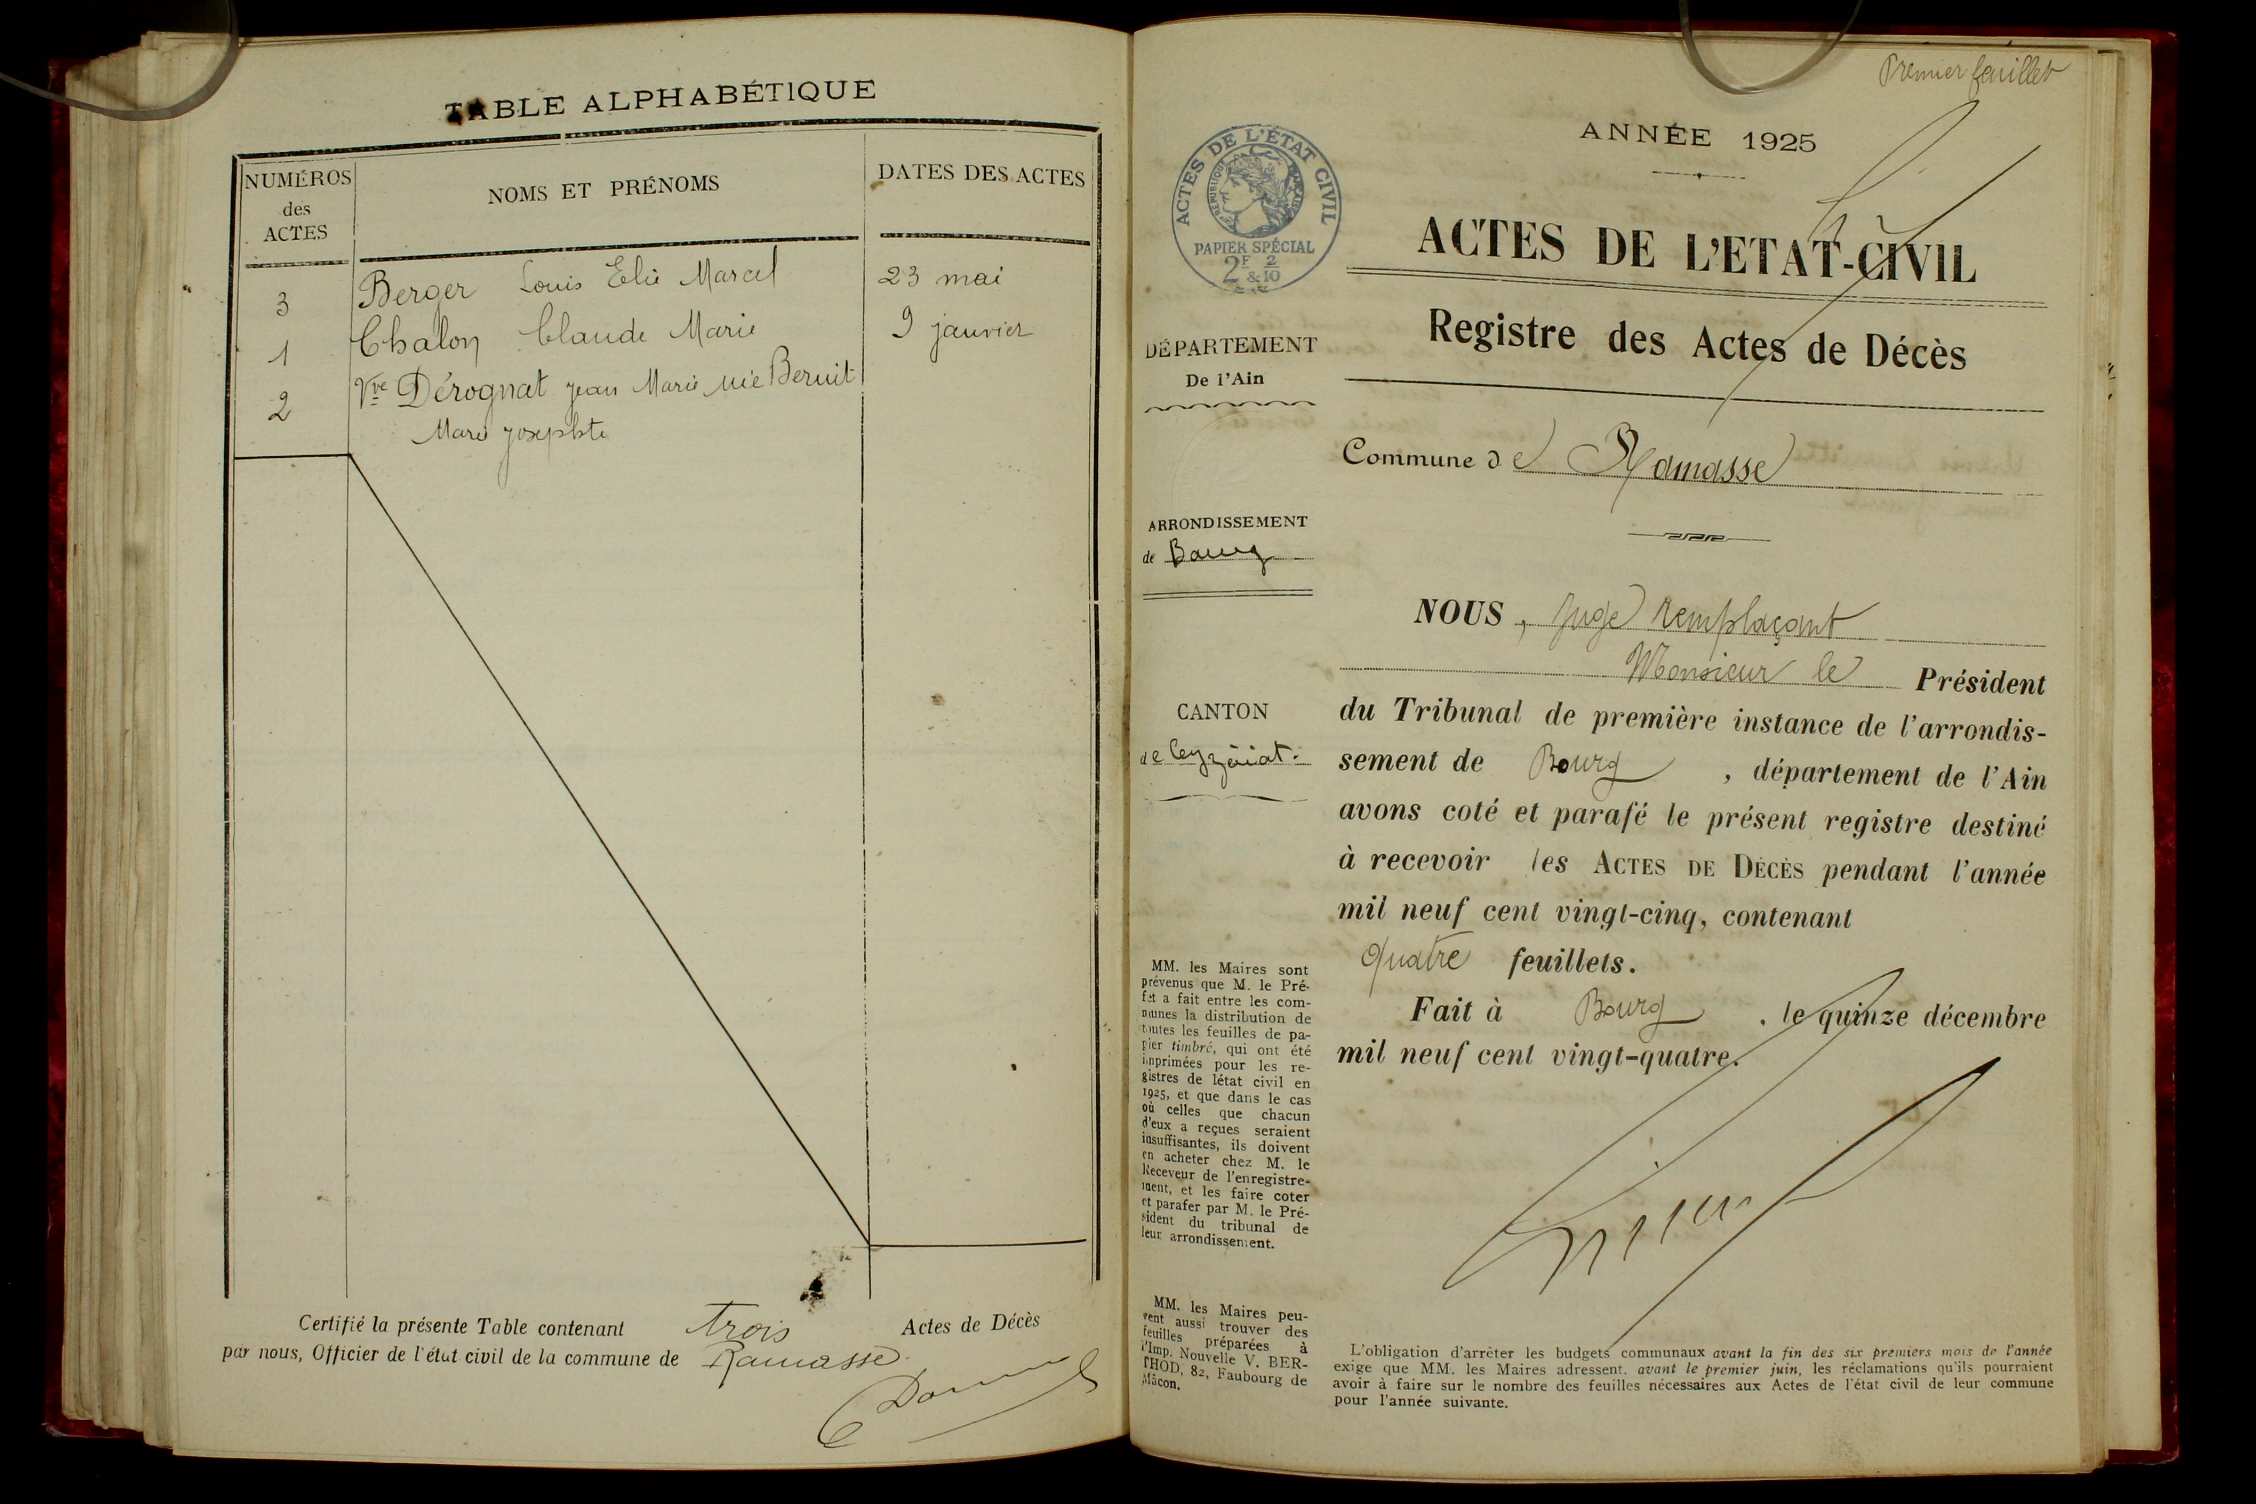 TABLE ALPHABÉTIQUE
NUMÉROS des ACTES
NOMS ET PRÉNOMS
DATES DES ACTES
3 Berger Louis Elie Marcel 23 mai
1 Chalon Claude Marie 9 janvier
2 Vve Dérognat Jean Marie née Beruit
Marie Josephte
Certifié la présente Table contenant trois Actes de Décès
par nous, Officier de l'état civil de la commune de Ramasse
Premier feuillet
ANNÉE 1925
ACTES DE L'ÉTAT CIVIL
RÉPUBLIQUE
PAPIER SPÉCIAL
2F 2/10
&
ACTES DE L'ETAT-CIVIL
Registre des Actes de Décès
DÉPARTEMENT
De l'Ain
Commune de Ramasse
ARRONDISSEMENT
de Bourg
CANTON
de Ceyzériat.
NOUS, Juge remplaçant
Monsieur le Président
du Tribunal de première instance de l'arrondis-
sement de Bourg, département de l'Ain
avons coté et parafé le présent registre destiné
à recevoir les ACTES DE DÉCÈS pendant l'année
mil neuf cent vingt-cinq, contenant
quatre feuillets.
Fait à Bourg, le quinze décembre
mil neuf cent vingt-quatre.
MM. les Maires sont
prévenus que M. le Pré-
fet a fait entre les com-
munes la distribution de
toutes les feuilles de pa-
pier timbré, qui ont été
imprimées pour les re-
gistres de létat civil en
1925, et que dans le cas
où celles que chacun
d'eux a reçues seraient
insuffisantes, ils doivent
en acheter chez M. le
Receveur de l'enregistre-
ment, et les faire coter
et parafer par M. le Pré-
sident du tribunal de
leur arrondissement.
MM. les Maires peu-
vent aussi trouver des
feuilles préparées à
l'Imp. Nouvelle V. BER-
THOD, 82, Faubourg de
Mâcon.
L'obligation d'arrêter les budgets communaux avant la fin des six premiers mois de l'année
exige que MM. les Maires adressent, avant le premier juin, les réclamations qu'ils pourraient
avoir à faire sur le nombre des feuilles nécessaires aux Actes de l'état civil de leur commune
pour l'année suivante.